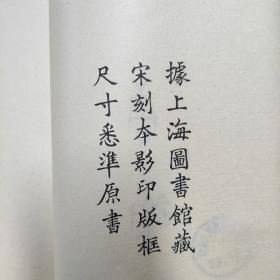 據上海圖書館藏
宋刻本影印版框
尺寸悉準原書